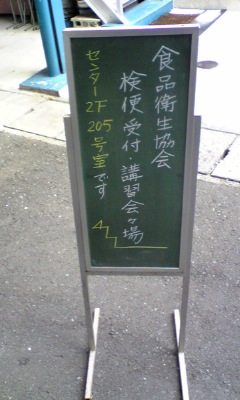 食品衛生協会
検便受付・講習会々場
センター2F
205号室です